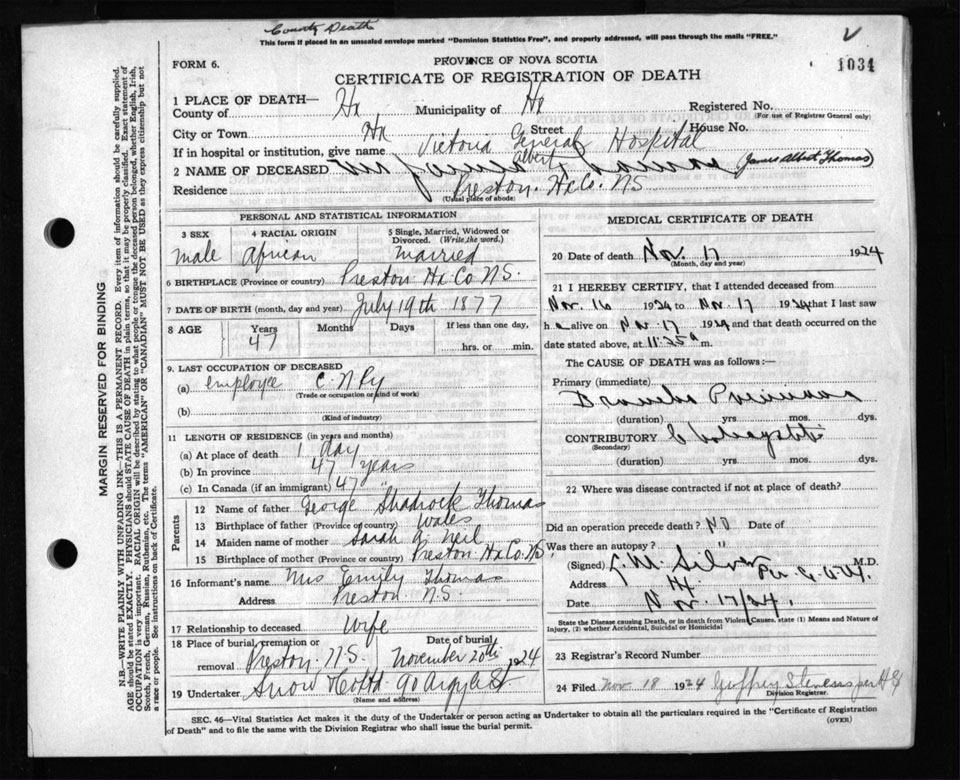 County Death
This form if placed in an unsealed envelope marked "Dominion Statistics Free", and properly addressed, will pass through the mails "FREE."
FORM 6.
PROVINCE OF NOVA SCOTIA
1034
CERTIFICATE OF REGISTRATION OF DEATH
1 PLACE OF DEATH—
County of Hx Municipality of Hx Registered No.
(For use of Registrar General only)
City or Town Hx Street House No.
If in hospital or institution, give name Victoria General Hospital
2 NAME OF DECEASED James Albert Thomas (James Albert Thomas)
Residence Preston. Hx Co. NS
(Usual place of abode)
PERSONAL AND STATISTICAL INFORMATION
3 SEX 4 RACIAL ORIGIN 5 Single, Married, Widowed or Divorced. (Write the word.)
male African Married
6 BIRTHPLACE (Province or country) Preston Hx Co N.S.
7 DATE OF BIRTH (month, day and year) July 19th 1877
8 AGE Years Months Days If less than one day,
47 hrs. or min.
9. LAST OCCUPATION OF DECEASED
(a) employee C.N Ry
(Trade or occupation or kind of work)
(b)
(Kind of industry)
11 LENGTH OF RESIDENCE (in years and months)
(a) At place of death 1 day
(b) In province 47 years
(c) In Canada (if an immigrant) 47 "
Parents
12 Name of father George Shadrock Thomas
13 Birthplace of father (Province or country) Wales
14 Maiden name of mother Sarah A. Neil
15 Birthplace of mother (Province or country) Preston Hx Co. N.S.
16 Informant's name Mrs Emily Thomas
Address Preston N.S.
17 Relationship to deceased Wife
18 Place of burial, cremation or removal Preston. N.S. Date of burial November 20th 1924
19 Undertaker Snow & Co Ltd 90 Argyle St
(Name and address)
MEDICAL CERTIFICATE OF DEATH
20 Date of death Nov. 17 1924
(Month, day and year)
21 I HEREBY CERTIFY, that I attended deceased from
Nov. 16 1924 to Nov. 17 1924 that I last saw
h alive on Nov. 17 1924 and that death occurred on the
date stated above, at 11.25 a m.
The CAUSE OF DEATH was as follows:—
Primary (immediate)
Broncho Pneumonia
(duration) yrs. mos. dys.
CONTRIBUTORY
(Secondary)
(duration) yrs. mos. dys.
22 Where was disease contracted if not at place of death?
Did an operation precede death? No Date of
Was there an autopsy? "
(Signed) M.D.
Address Hx
Date Nov. 17/24.
State the Disease causing Death, or in death from Violent Causes, state (1) Means and Nature of Injury, (2) whether Accidental, Suicidal or Homicidal
23 Registrar's Record Number
24 Filed Nov 18 1924
Division Registrar.
SEC. 46—Vital Statistics Act makes it the duty of the Undertaker or person acting as Undertaker to obtain all the particulars required in the "Certificate of Registration of Death" and to file the same with the Division Registrar who shall issue the burial permit.
(OVER)
MARGIN RESERVED FOR BINDING
N.B.—WRITE PLAINLY WITH UNFADING INK—THIS IS A PERMANENT RECORD. Every item of information should be carefully supplied.
AGE should be stated EXACTLY. PHYSICIANS should STATE CAUSE OF DEATH in plain terms, so that it may be properly classified. Exact statement of
OCCUPATION is very important. RACIAL ORIGIN will be described by stating to what people or tongue the deceased person belonged, whether English, Irish,
Scotch, French, German, Russian, Ruthenian, etc. The terms "AMERICAN" or "CANADIAN" MUST NOT BE USED as they express citizenship but not
a race or people. See instructions on back of Certificate.